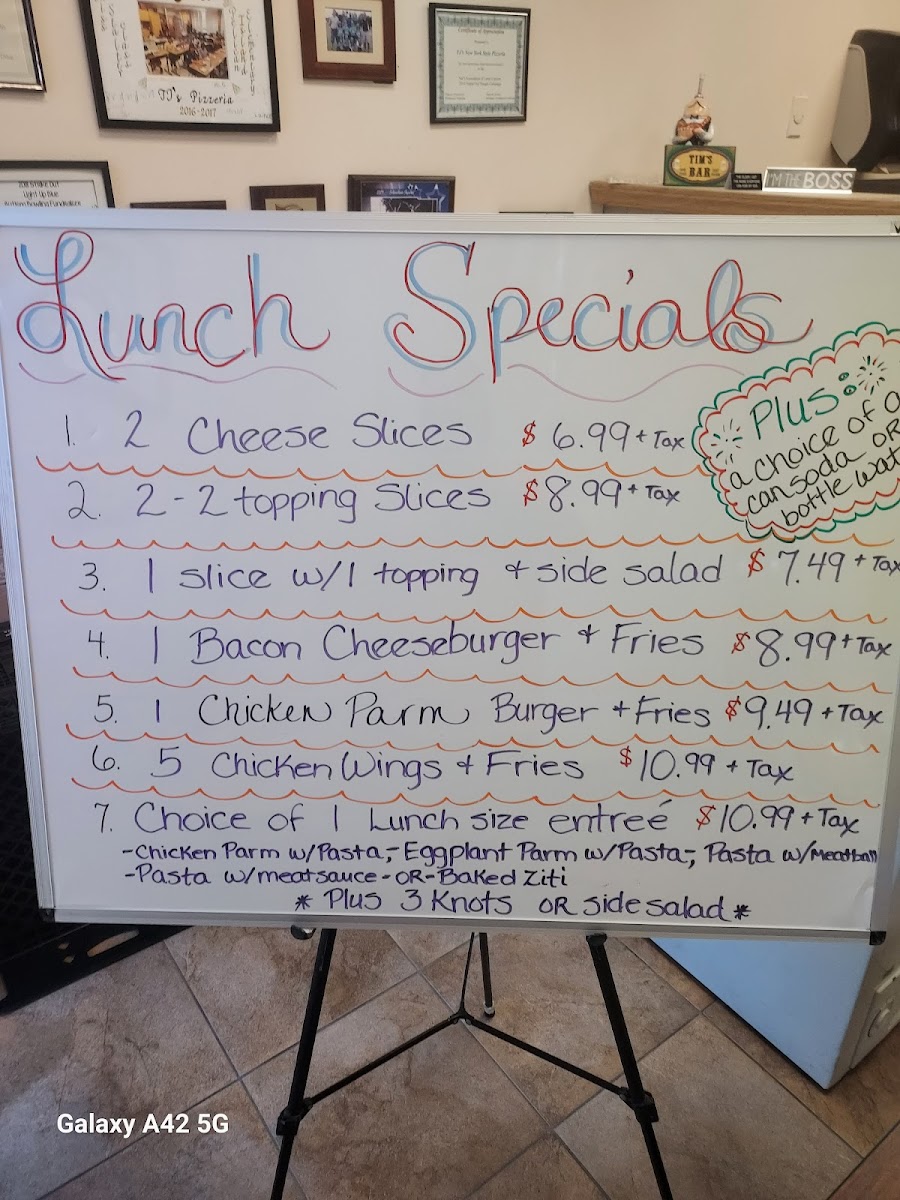 TJ's Pizzeria
2016-2017
Certificate of Appreciation
TJ's New York Style Pizzeria
Light Up Blue
TIM'S
BAR
I'M THE BOSS
Lunch Specials
1. 2 Cheese Slices $6.99 + Tax
2. 2-2 topping Slices $8.99 + Tax
Plus:
a choice of a
can soda OR
bottle wat
3. 1 slice w/1 topping + side salad $7.49 + Tax
4. 1 Bacon Cheeseburger + Fries $8.99 + Tax
5. 1 Chicken Parm Burger + Fries $9.49 + Tax
6. 5 Chicken Wings + Fries $10.99 + Tax
7. Choice of 1 Lunch size entreé $10.99 + Tax
-Chicken Parm w/Pasta,-Eggplant Parm w/Pasta-, Pasta w/meatball
-Pasta w/meatsauce-OR-Baked Ziti
* Plus 3 Knots OR side salad *
Galaxy A42 5G